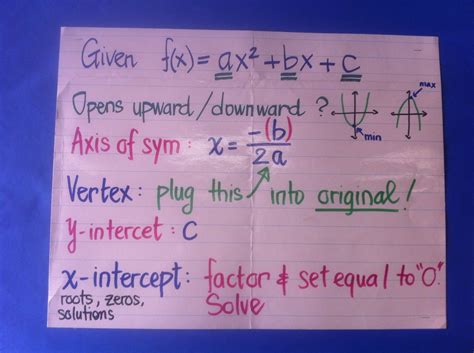 Given f(x) = ax² + bx + c
max
Opens upward/downward ?
min
Axis of sym : x = -(b)/2a
Vertex : plug this into original!
y-intercet : C
x-intercept: factor & set equal to "0".
roots, zeros, Solve
solutions